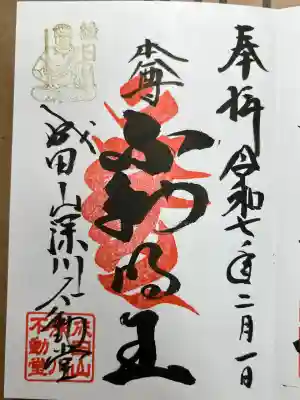 奉拝 令和七年二月一日
本尊
不動明王
縁日
成田山深川不動堂
成田山
不動堂